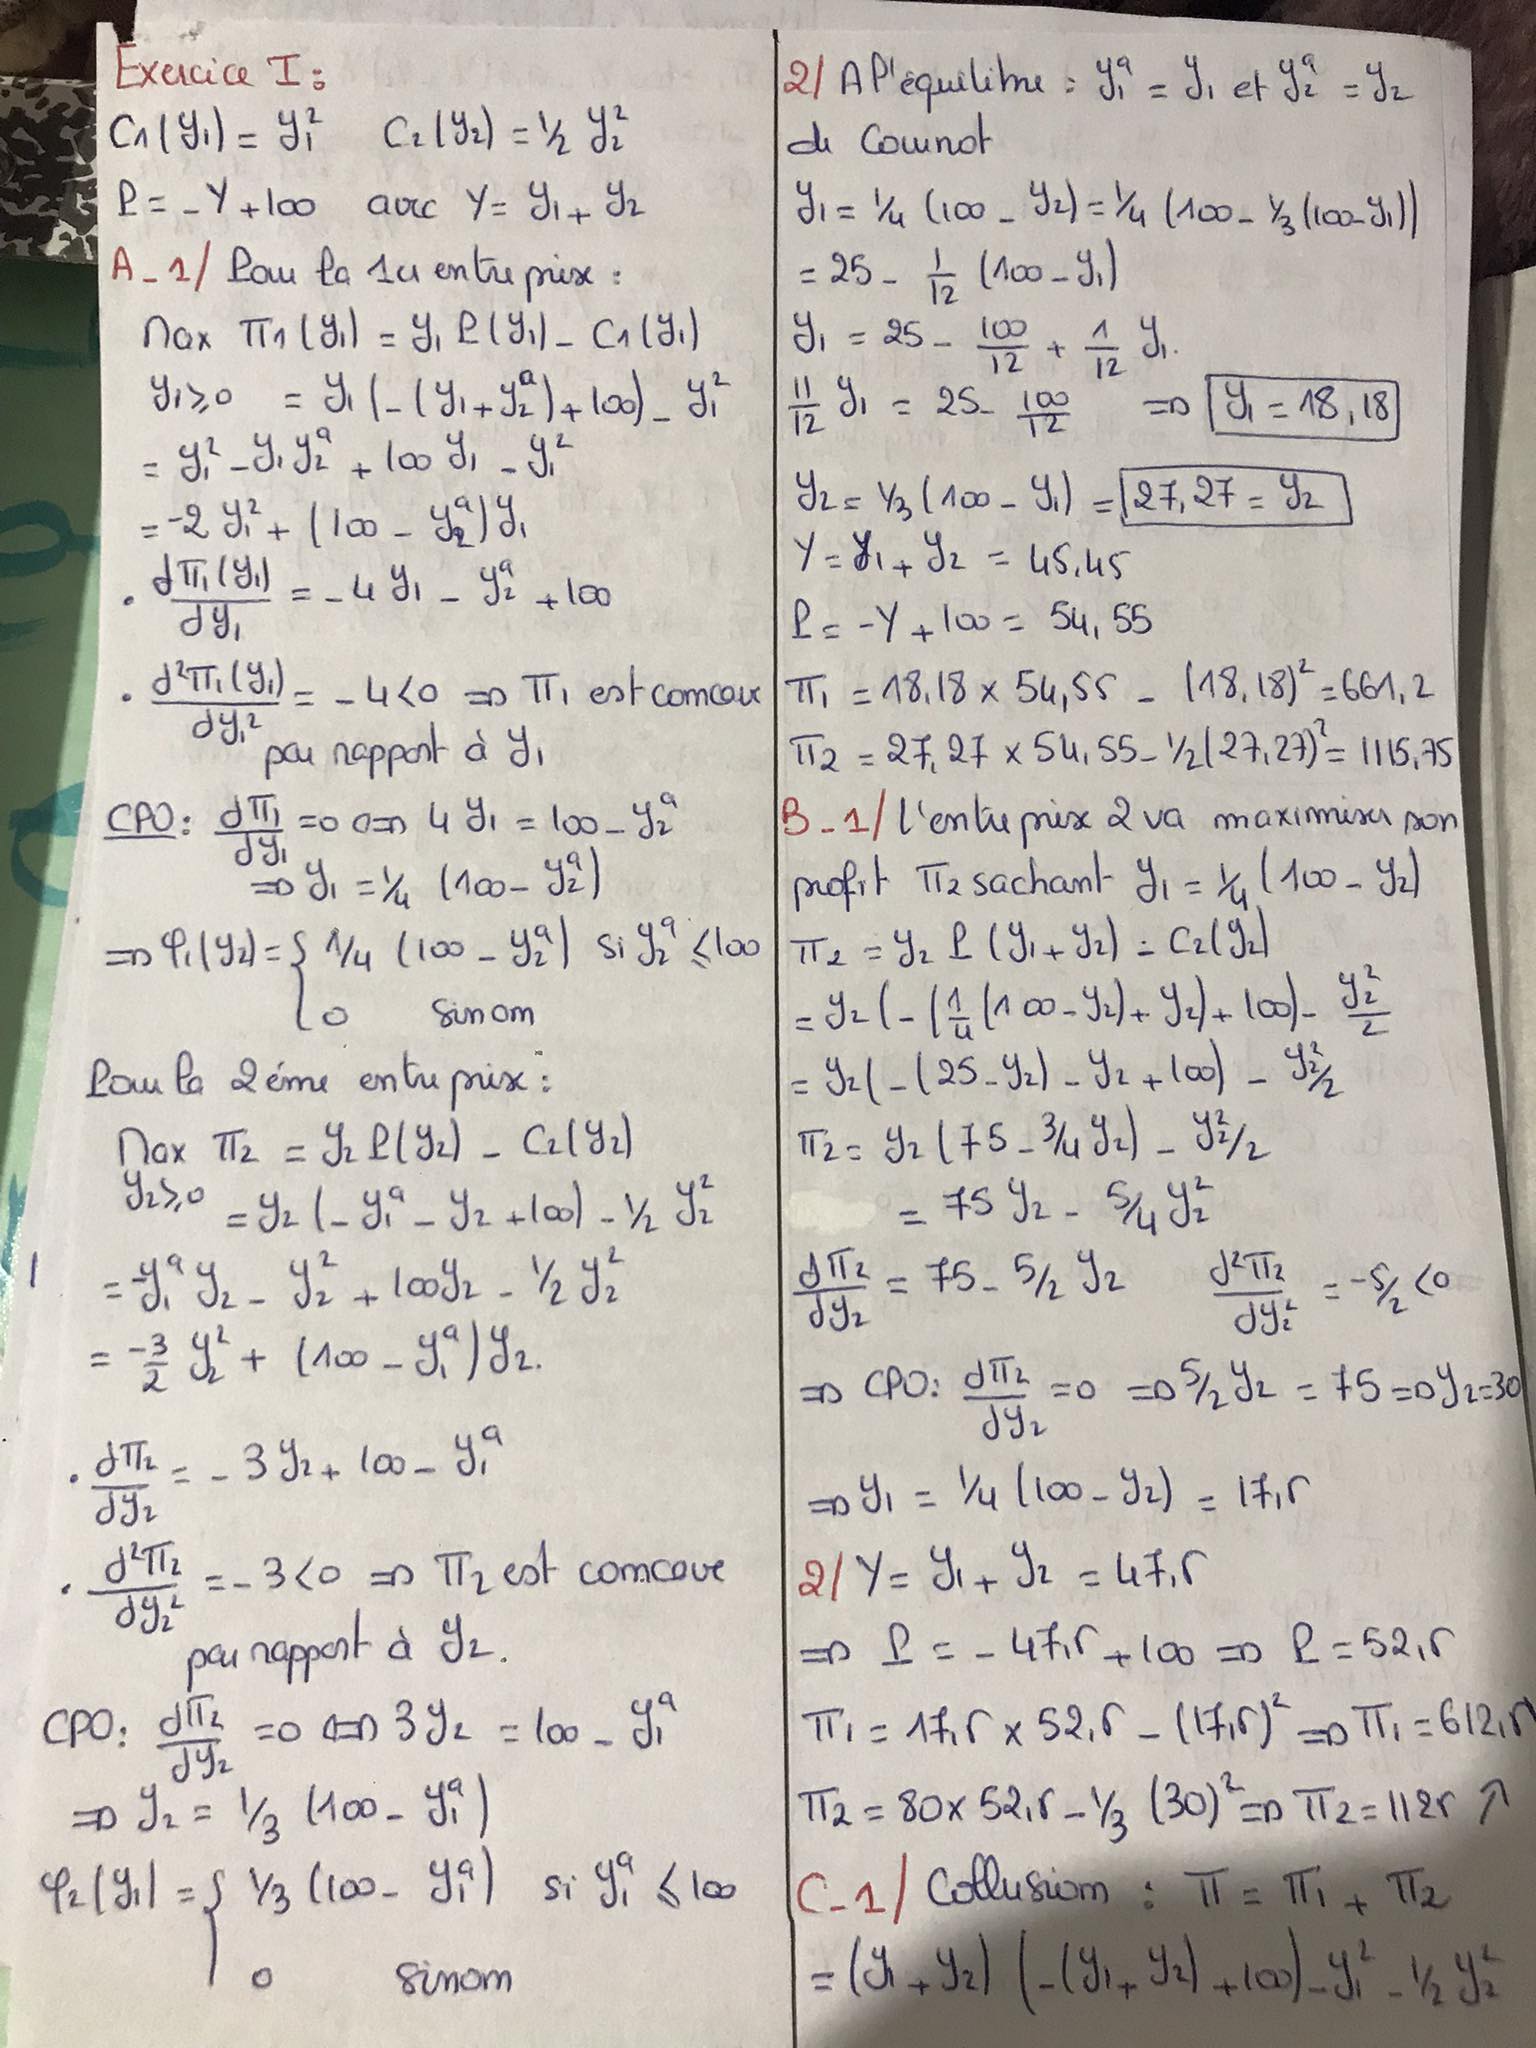 Exercice I :
C1(y1) = y1² C2(y2) = 1/2 y2²
P = -Y + 100 avec Y = y1 + y2
A-1/ Pour la 1er entreprise :
Max π1(y1) = y1 P(y1) - C1(y1)
y1 ≥ 0 = y1 (-(y1 + y2^a) + 100) - y1²
= y1² - y1 y2^a + 100 y1 - y1²
= -2 y1² + (100 - y2^a) y1
• dπ1(y1)/dy1 = -4 y1 - y2^a + 100
• d²π1(y1)/dy1² = -4 < 0 => π1 est concave
par rapport à y1
CPO : dπ1/dy1 = 0 <=> 4 y1 = 100 - y2^a
=> y1 = 1/4 (100 - y2^a)
=> φ1(y2) = { 1/4 (100 - y2^a) si y2^a ≤ 100
0 sinon
Pour la 2éme entreprise :
Max π2 = y2 P(y2) - C2(y2)
y2 ≥ 0 = y2 (-y1^a - y2 + 100) - 1/2 y2²
= -y1^a y2 - y2² + 100y2 - 1/2 y2²
= -3/2 y2² + (100 - y1^a) y2.
• dπ2/dy2 = -3 y2 + 100 - y1^a
• d²π2/dy2² = -3 < 0 => π2 est concave
par rapport à y2.
CPO : dπ2/dy2 = 0 <=> 3 y2 = 100 - y1^a
=> y2 = 1/3 (100 - y1^a)
φ2(y1) = { 1/3 (100 - y1^a) si y1^a ≤ 100
0 sinon
2/ A l'équilibre : y1^a = y1 et y2^a = y2
de Cournot
y1 = 1/4 (100 - y2) = 1/4 (100 - 1/3 (100 - y1))
= 25 - 1/12 (100 - y1)
y1 = 25 - 100/12 + 1/12 y1.
11/12 y1 = 25 - 100/12 => y1 = 18,18
y2 = 1/3 (100 - y1) = 27,27 = y2
Y = y1 + y2 = 45,45
P = -Y + 100 = 54,55
π1 = 18,18 x 54,55 - (18,18)² = 661,2
π2 = 27,27 x 54,55 - 1/2 (27,27)² = 1115,75
B-1/ L'entreprise 2 va maximiser son
profit π2 sachant y1 = 1/4 (100 - y2)
π2 = y2 P (y1 + y2) - C2(y2)
= y2 (-(1/4 (100 - y2) + y2) + 100) - y2²/2
= y2 (-(25 - y2) - y2 + 100) - y2²/2
π2 = y2 (75 - 3/4 y2) - y2²/2
= 75 y2 - 5/4 y2²
dπ2/dy2 = 75 - 5/2 y2 d²π2/dy2² = -5/2 < 0
=> CPO : dπ2/dy2 = 0 => 5/2 y2 = 75 => y2 = 30
=> y1 = 1/4 (100 - y2) = 17,5
2/ Y = y1 + y2 = 47,5
=> P = -47,5 + 100 => P = 52,5
π1 = 17,5 x 52,5 - (17,5)² => π1 = 612,5
π2 = 80 x 52,5 - 1/3 (30)² => π2 = 1125 ↗
C-1/ Collusion : π = π1 + π2
= (y1 + y2) (-(y1 + y2) + 100) - y1² - 1/2 y2²